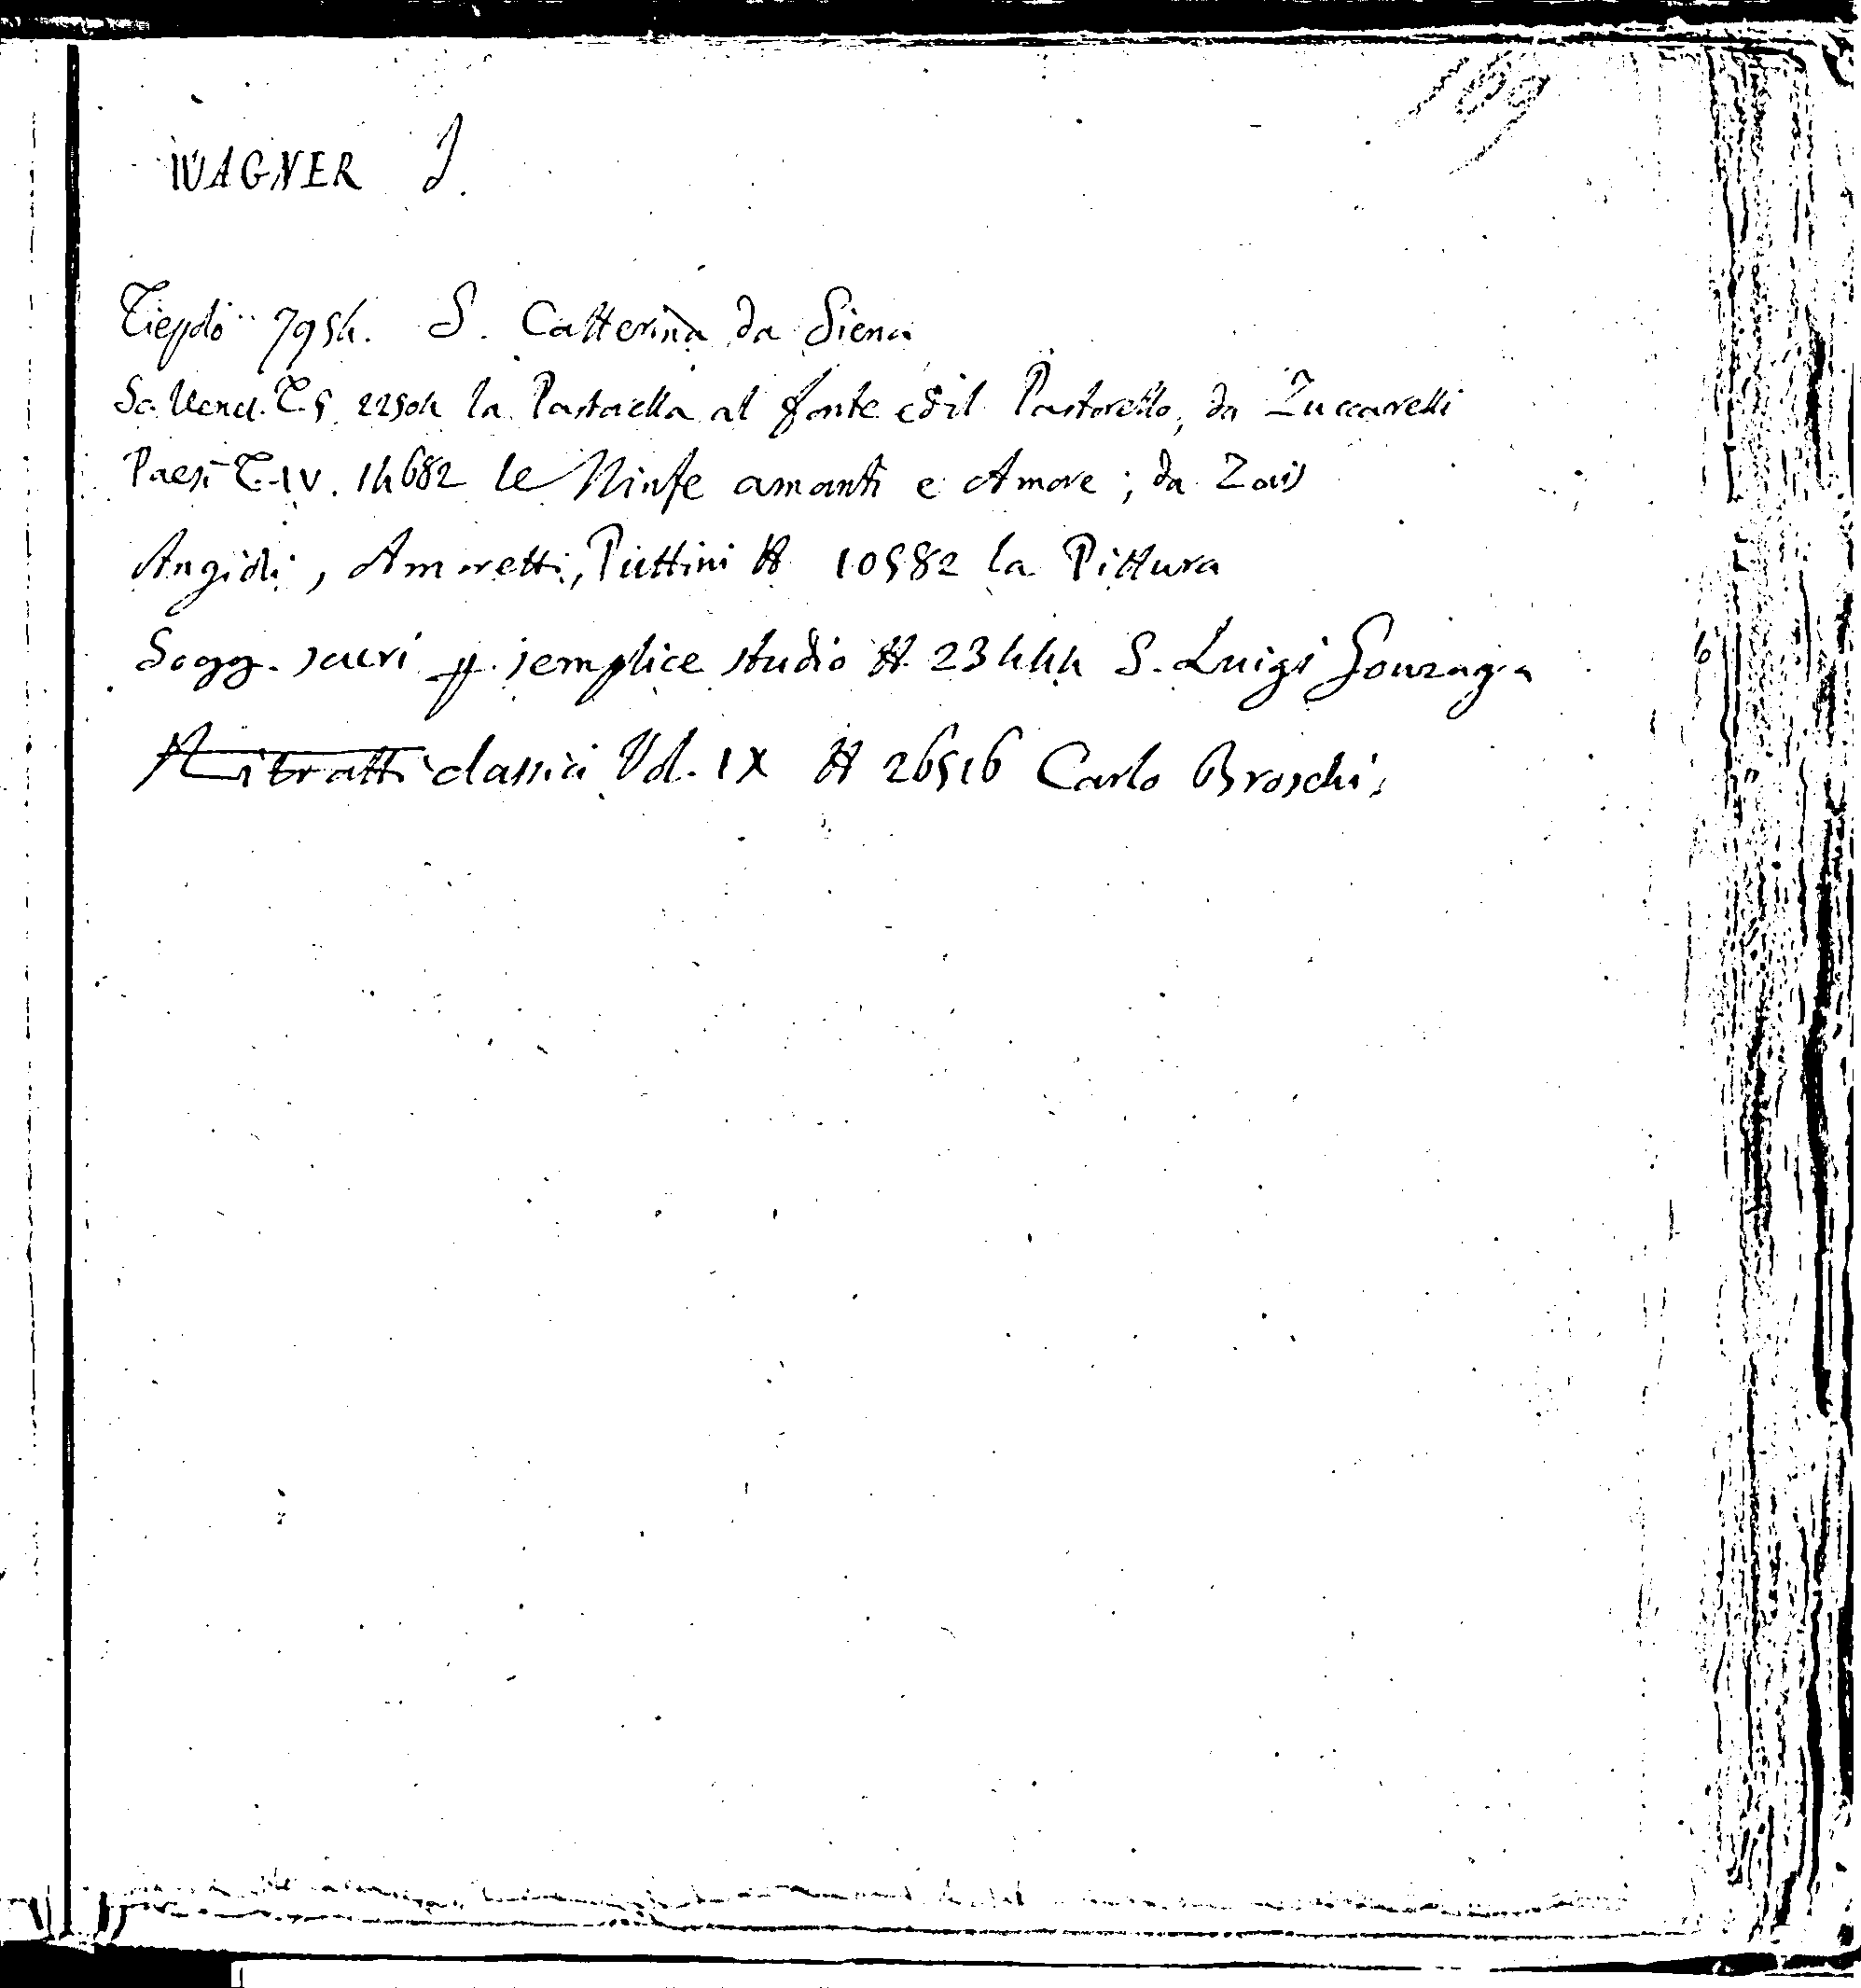 169
WAGNER J.
Tiepolo 7954. S. Catterina da Siena
Sc. Venet. T. 5 22504 la Pastorella al fonte ed il Pastorello, da Zuccarelli
Paesi T. IV. 14682 le Ninfe amanti e Amore ; da Zais
Angioli, Amoretti, Puttini A 10582 la Pittura
Sogg. sacri p. semplice studio A. 23444 S. Luigi Gonzaga
Ritratti classici Vol. IX A 26516 Carlo Broschi.